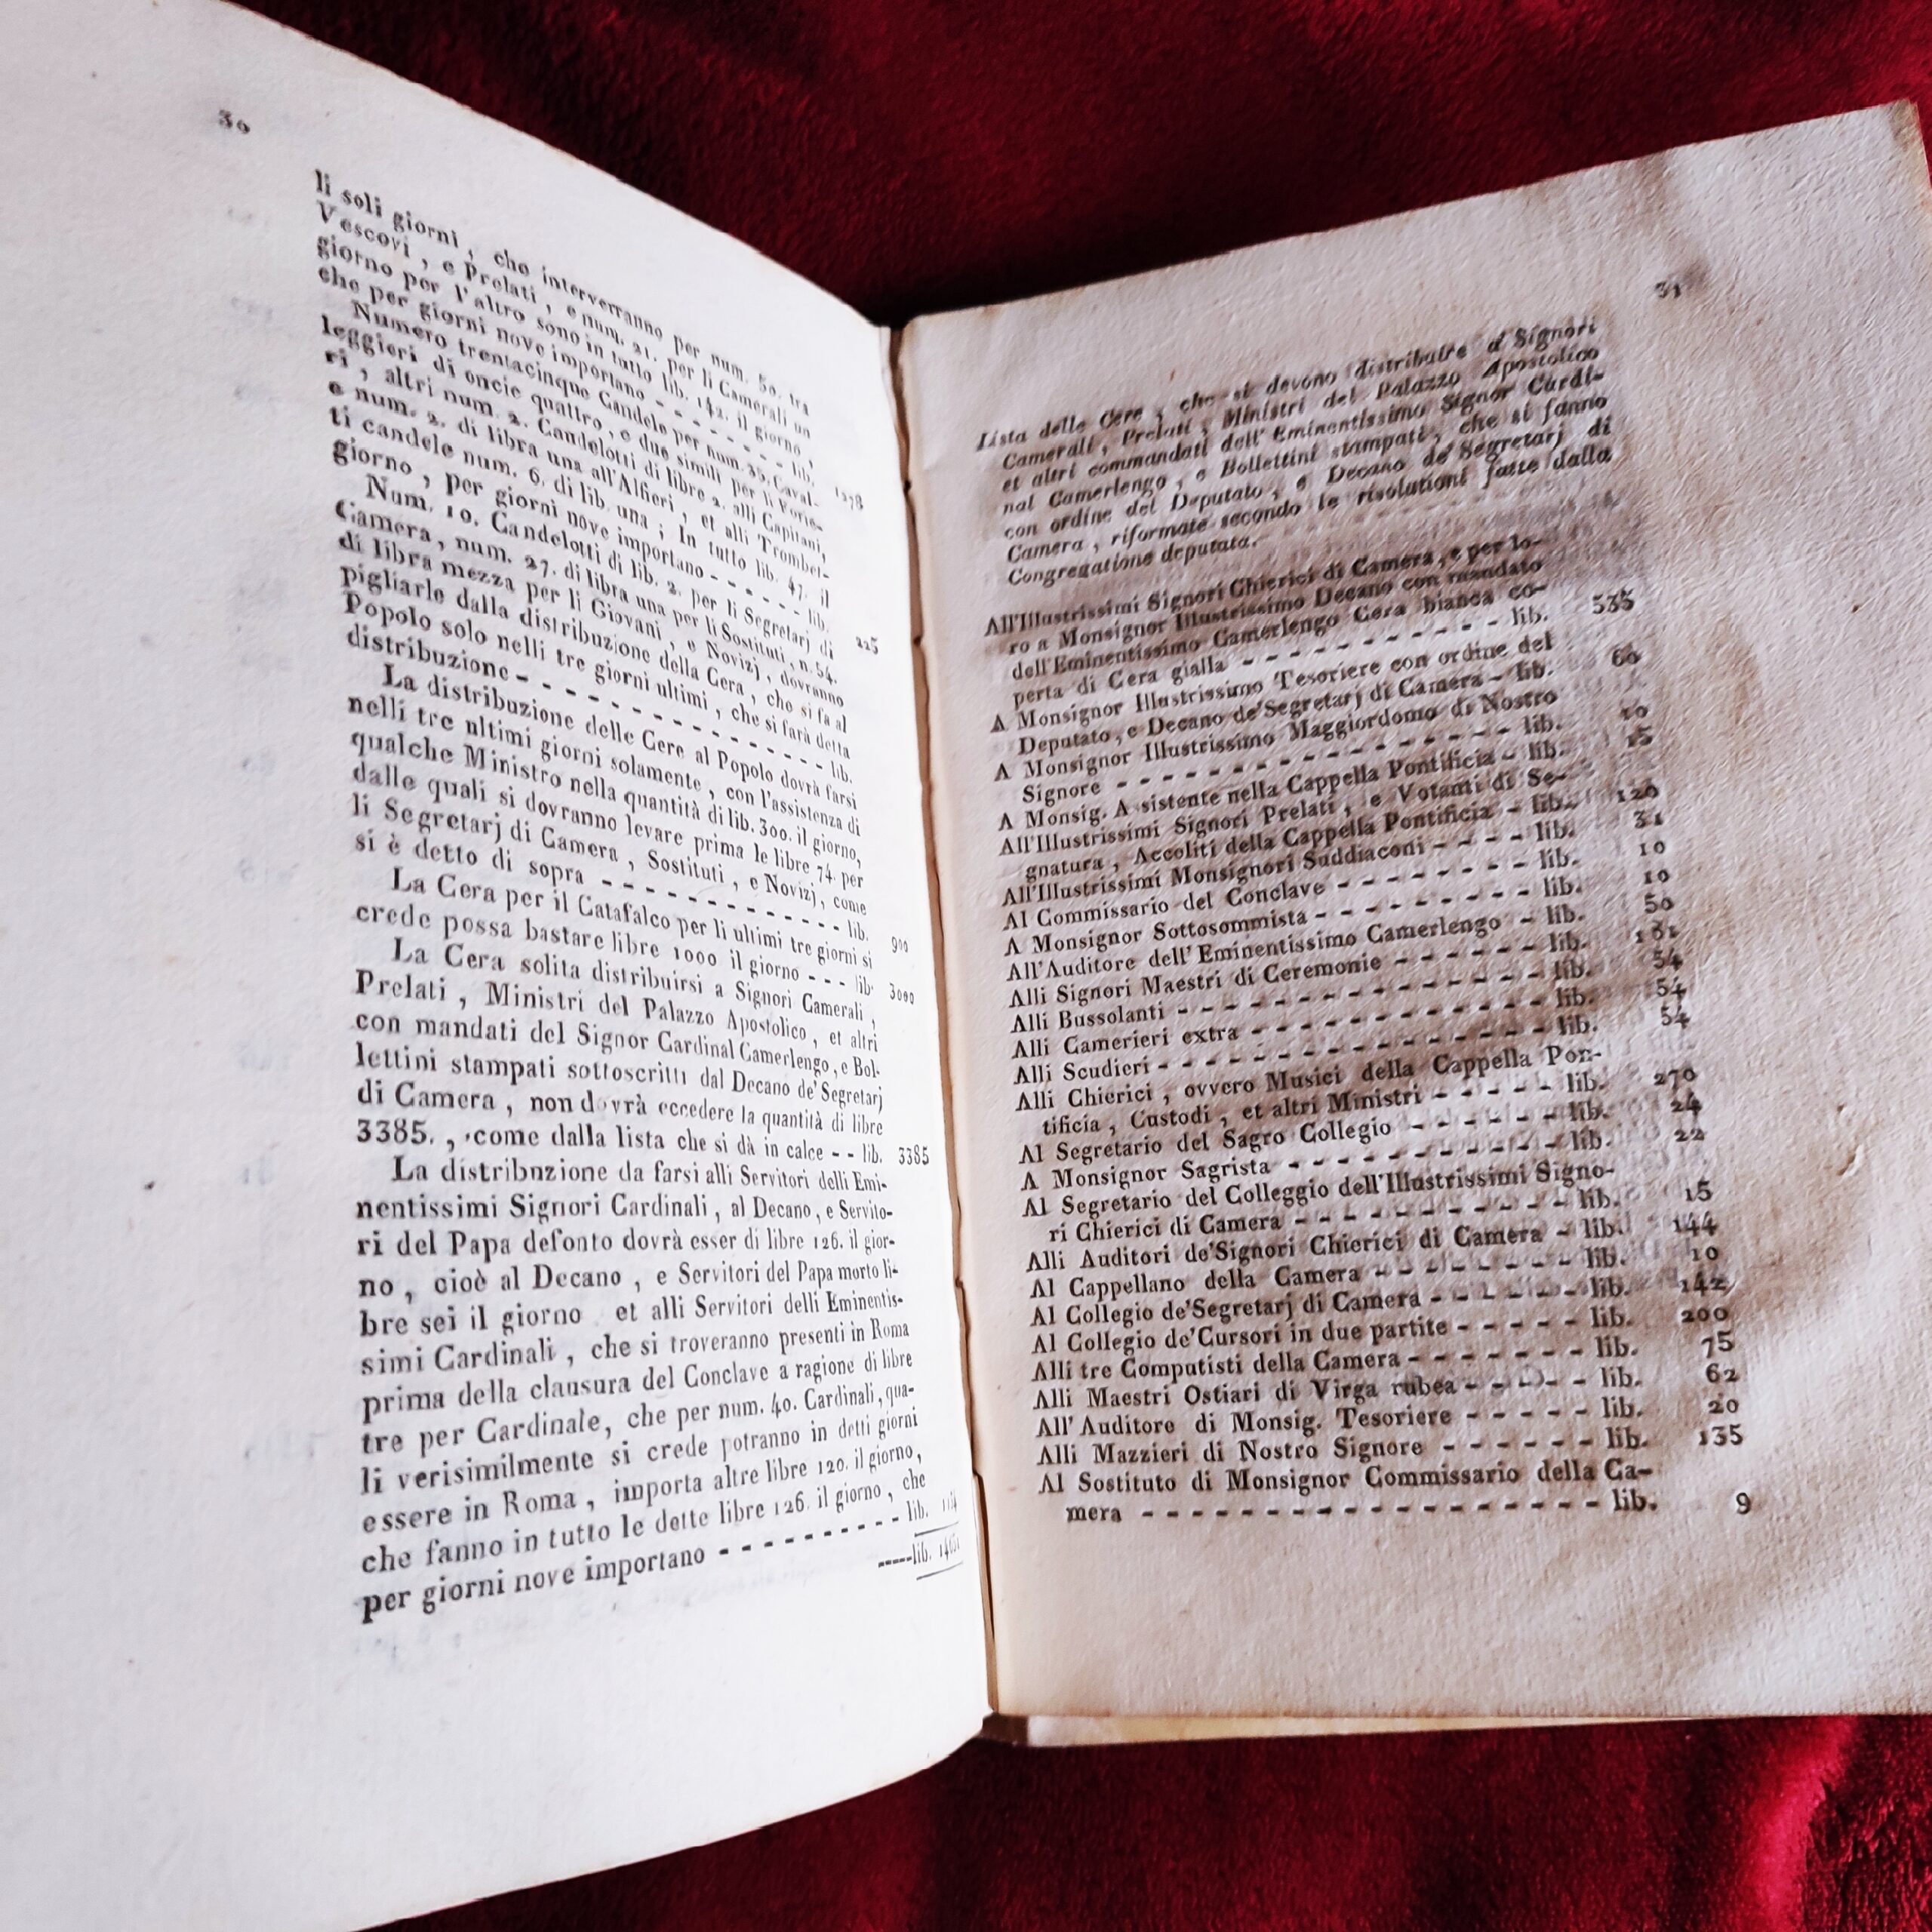 30
li soli giorni , che interverranno per num. 50. tra
Vescovi , e Prelati , e num. 21. per li Camerali un
giorno per l'altro sono in tutto lib. 142. il giorno ,
che per giorni nove importano - - - - - - - lib. 1278
Numero trentacinque Candele per num. 35. Caval-
leggieri di oncie quattro , e due simili per li Forie-
ri , altri num. 2. Candelotti di libre 2. alli Capitani,
e num. 2. di libra una all'Alfieri , et alli Trombet-
ti candele num. 6. di lib. una ; In tutto lib. 47. il
giorno , per giorni nove importano - - - - - - lib. 225
Num. 10. Candelotti di lib. 2. per li Segretarj di
Camera, num. 27. di libra una per li Sostituti , n. 54.
di libra mezza per li Giovani , e Novizj , dovranno
pigliarle dalla distribuzione della Cera , che si fa al
Popolo solo nelli tre giorni ultimi , che si farà detta
distribuzione - - - - - - - - - - - - - - - - lib.
La distribuzione delle Cere al Popolo dovrà farsi
nelli tre ultimi giorni solamente , con l'assistenza di
qualche Ministro nella quantità di lib. 300. il giorno,
dalle quali si dovranno levare prima le libre 74. per
li Segretarj di Camera , Sostituti , e Novizj , come
si è detto di sopra - - - - - - - - - - - - - lib. 900
La Cera per il Catafalco per li ultimi tre giorni si
crede possa bastare libre 1000 il giorno - - - lib. 3000
La Cera solita distribuirsi a Signori Camerali ,
Prelati , Ministri del Palazzo Apostolico , et altri
con mandati del Signor Cardinal Camerlengo , e Bol-
lettini stampati sottoscritti dal Decano de' Segretarj
di Camera , non dovrà eccedere la quantità di libre
3385. , come dalla lista che si dà in calce - - lib. 3385
La distribuzione da farsi alli Servitori delli Emi-
nentissimi Signori Cardinali , al Decano , e Servito-
ri del Papa defonto dovrà esser di libre 126. il gior-
no , cioè al Decano , e Servitori del Papa morto li-
bre sei il giorno et alli Servitori delli Eminentis-
simi Cardinali , che si troveranno presenti in Roma
prima della clausura del Conclave a ragione di libre
tre per Cardinale, che per num. 40. Cardinali , qua-
li verisimilmente si crede potranno in detti giorni
essere in Roma , importa altre libre 120. il giorno ,
che fanno in tutto le dette libre 126. il giorno , che
per giorni nove importano - - - - - - - - - - lib.
-----lib.
31
Lista delle Cere , che si devono distribuire a' Signori
Camerali , Prelati , Ministri del Palazzo Apostolico
et altri commandati dell'Eminentissimo Signor Cardi-
nal Camerlengo , e Bollettini stampati , che si fanno
con ordine del Deputato , e Decano de' Segretarj di
Camera , riformate secondo le risolutioni fatte dalla
Congregatione deputata.
All'Illustrissimi Signori Chierici di Camera , e per lo-
ro a Monsignor Illustrissimo Decano con mandato
dell'Eminentissimo Camerlengo Cera bianca co-
perta di Cera gialla - - - - - - - - - - - lib. 535
A Monsignor Illustrissimo Tesoriere con ordine del
Deputato , e Decano de'Segretarj di Camera - lib. 60
A Monsignor Illustrissimo Maggiordomo di Nostro
Signore - - - - - - - - - - - - - - - - lib. 10
A Monsig. A sistente nella Cappella Pontificia - lib. 15
All'Illustrissimi Signori Prelati , e Votanti di Se-
gnatura , Accoliti della Cappella Pontificia - lib. 120
All'Illustrissimi Monsignori Suddiaconi - - - - lib. 31
Al Commissario del Conclave - - - - - - - - lib. 10
A Monsignor Sottosommista - - - - - - - - - lib. 10
All'Auditore dell'Eminentissimo Camerlengo - lib. 50
Alli Signori Maestri di Ceremonie - - - - - - lib. 181
Alli Bussolanti - - - - - - - - - - - - - - - lib. 54
Alli Camerieri extra - - - - - - - - - - - - - lib. 54
Alli Scudieri - - - - - - - - - - - - - - - - lib. 54
Alli Chierici , ovvero Musici della Cappella Pon-
tificia , Custodi , et altri Ministri - - - - - lib. 270
Al Segretario del Sagro Collegio - - - - - - - lib. 24
A Monsignor Sagrista - - - - - - - - - - - - lib. 22
Al Segretario del Colleggio dell'Illustrissimi Signo-
ri Chierici di Camera - - - - - - - - - - - lib. 15
Alli Auditori de'Signori Chierici di Camera - lib. 144
Al Cappellano della Camera - - - - - - - - - lib. 10
Al Collegio de'Segretarj di Camera - - - - - - lib. 142
Al Collegio de'Cursori in due partite - - - - - lib. 200
Alli tre Computisti della Camera - - - - - - - lib. 75
Alli Maestri Ostiari di Virga rubea - - - - - lib. 62
All'Auditore di Monsig. Tesoriere - - - - - lib. 20
Alli Mazzieri di Nostro Signore - - - - - - lib. 135
Al Sostituto di Monsignor Commissario della Ca-
mera - - - - - - - - - - - - - - - - - - lib. 9